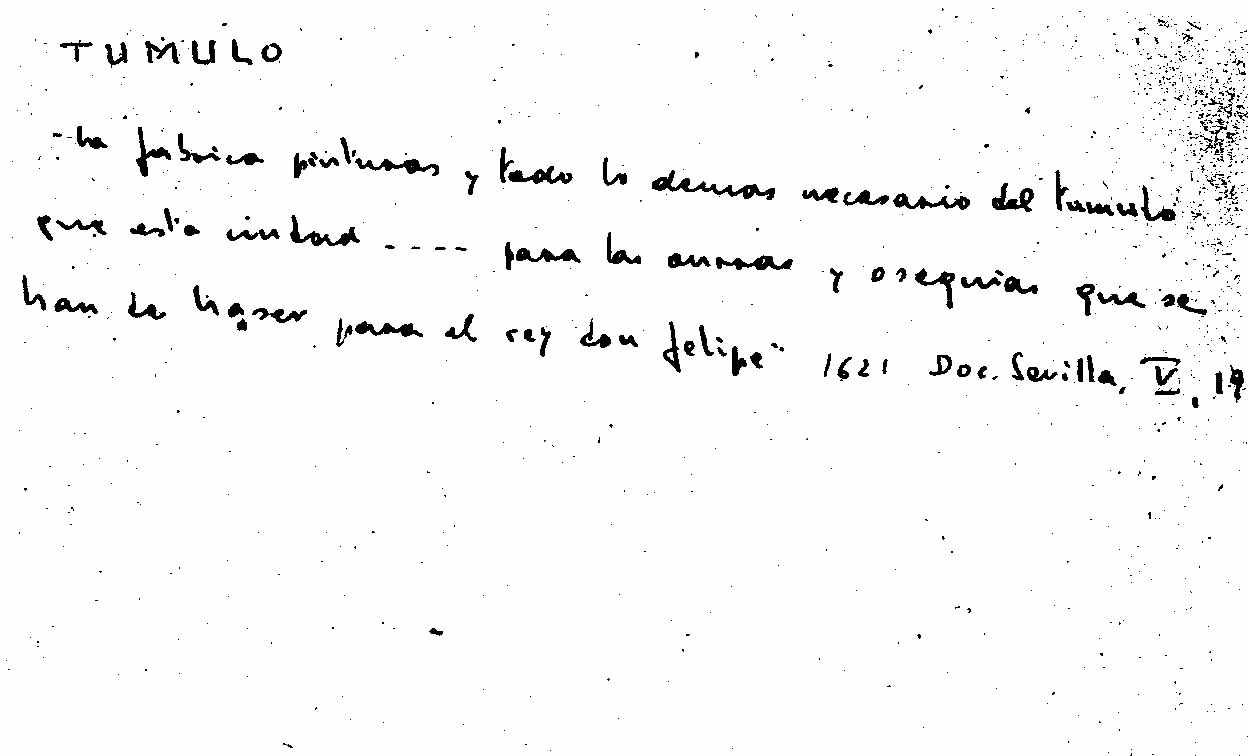 TUMULO
"la fabrica pinturas y todo lo demas necesario del tumulo
que esta ciudad ---- para las onrras y osequias que se
han de haser para el rey don felipe" 1621 Doc. Sevilla, V,